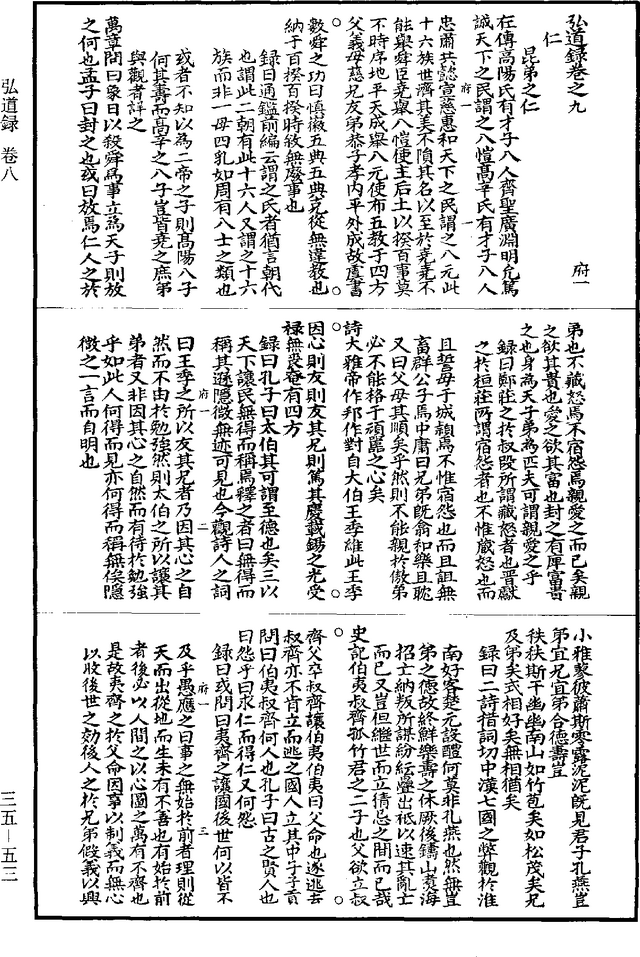 弘道録卷之九
仁
昆弟之仁
府一
在傳高陽氏有才子八人齊聖廣淵明允篤
誠天下之民謂之八愷高辛氏有才子八人
忠肅共懿宣慈惠和天下之民謂之八元此
十六族世濟其美不隕其名以至於堯堯不
能舉舜臣堯舉八愷使主后土以揆百事莫
不時序地平天成舉八元使布五教于四方
父義母慈兄友弟恭子孝内平外成故虞書
數舜之功曰慎徽五典五典克從無違教也
納于百揆百揆時敘無廢事也
録曰通鑑前編云謂之氏者猶言朝代
也謂此二朝有此十六人又謂之十六
族而非一母四乳如周有八士之類也
或者不知以為二帝之子則高陽八子
何其壽而高辛之八子豈皆堯之庶弟
與觀者詳之
萬章問曰象日以殺舜為事立為天子則放
之何也孟子曰封之也或曰放焉仁人之於
弟也不藏怒焉不宿怨焉親愛之而已矣親
之欲其貴也愛之欲其富也封之有庳富貴
之也身為天子弟為匹夫可謂親愛之乎
録曰鄭莊之於叔段所謂藏怒者也晋獻
之於桓莊所謂宿怨者也不惟藏怒也而
且誓母于城潁焉不惟宿怨也而且詛無
畜群公子焉中庸曰兄弟既翕和樂且耽
又曰父母其順矣乎然則不能親於傲弟
必不能格于頑嚚之心矣
詩大雅帝作邦作對自大伯王季維此王季
因心則友則友其兄則篤其慶載錫之光受
祿無喪奄有四方
録曰孔子曰太伯其可謂至德也矣三以
天下讓民無得而稱焉釋之者曰無得而
稱其遜隱微無迹可見也今觀詩人之詞
府一
二
曰王季之所以友其兄者乃因其心之自
然而不由於勉強然則太伯之所以讓其
弟者又非因其心之自然而有待於勉強
乎如此人何得而見亦何得而稱無俟隱
微之一言而自明也
小雅蓼彼蕭斯零露泥泥既見君子孔燕豈
弟宜兄宜弟令德壽豈
秩秩斯干幽幽南山如竹苞矣如松茂矣兄
及弟矣式相好矣無相猶矣
録曰二詩措詞切中漢七國之弊觀於淮
南好客楚元設醴何莫非孔燕也然無豈
弟之德故終鮮樂壽之休厥後鑄山煮海
招亡納叛所謀紛紜疊出祗以速其亂亡
而已又豈但繼世而立猜忌之間而已哉
史記伯夷叔齊孤竹君之二子也父欲立叔
齊父卒叔齊讓伯夷伯夷曰父命也遂逃去
叔齊亦不肯立而逃之國人立其中子子貢
問曰伯夷叔齊何人也孔子曰古之賢人也
曰怨乎曰求仁而得仁又何怨
録曰或問曰夷齊之讓國後世何以皆不
府一
三
及乎愚應之曰事之無始於前者理則從
天而出從地而生未有不善也有始於前
者後必以人間之以心圖之萬有不齊也
是故夷齊之於父命因事以制義而無心
以收後世之効後人之於兄弟假義以興
弘道録　卷八
三五—五三